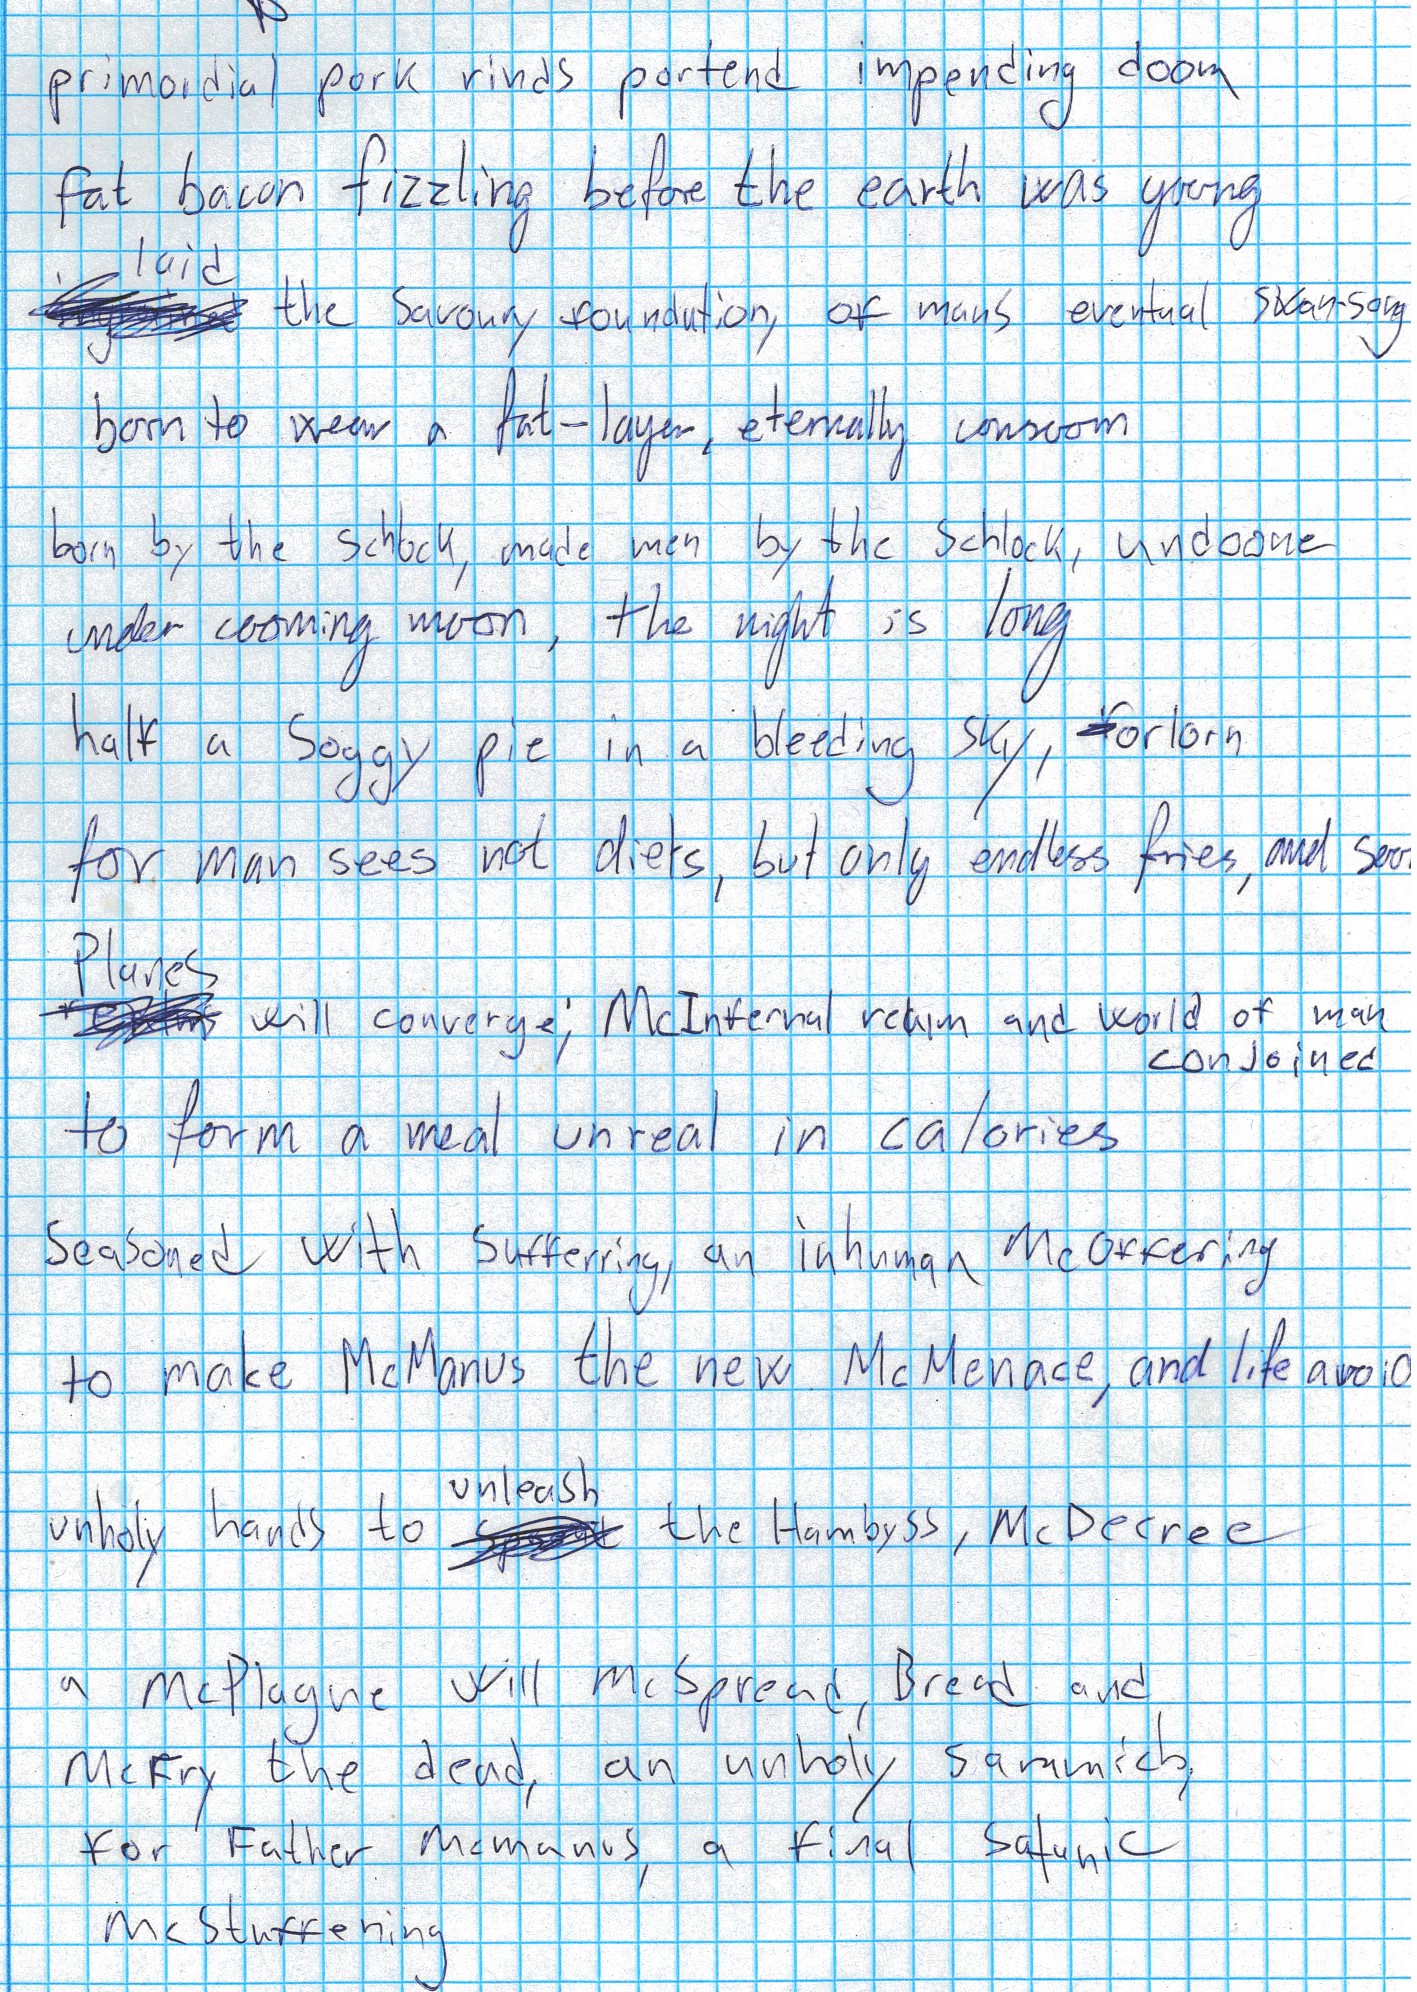 primordial pork rinds portend impending doom
fat bacon fizzling before the earth was young
laid the savoury foundation, of mans eventual swan-song
born to wear a fat-layer, eternally consoom
born by the schlock, made men by the schlock, undoone
under cooming moon, the night is long
half a soggy pie in a bleeding sky, forlorn
for man sees not diets, but only endless fries, and soon
Planes will converge; McInfernal realm and world of man
conjoined
to form a meal unreal in calories
Seasoned with Sufferring, an inhuman McOffering
to make McManus the new McMenace, and life avoid
unholy hands to unleash the Hambyss, McDecree
a McPlague will McSpread, Bread and
McFry the dead, an unholy sammich,
For Father Mcmanus, a final Satanic
McStuffering